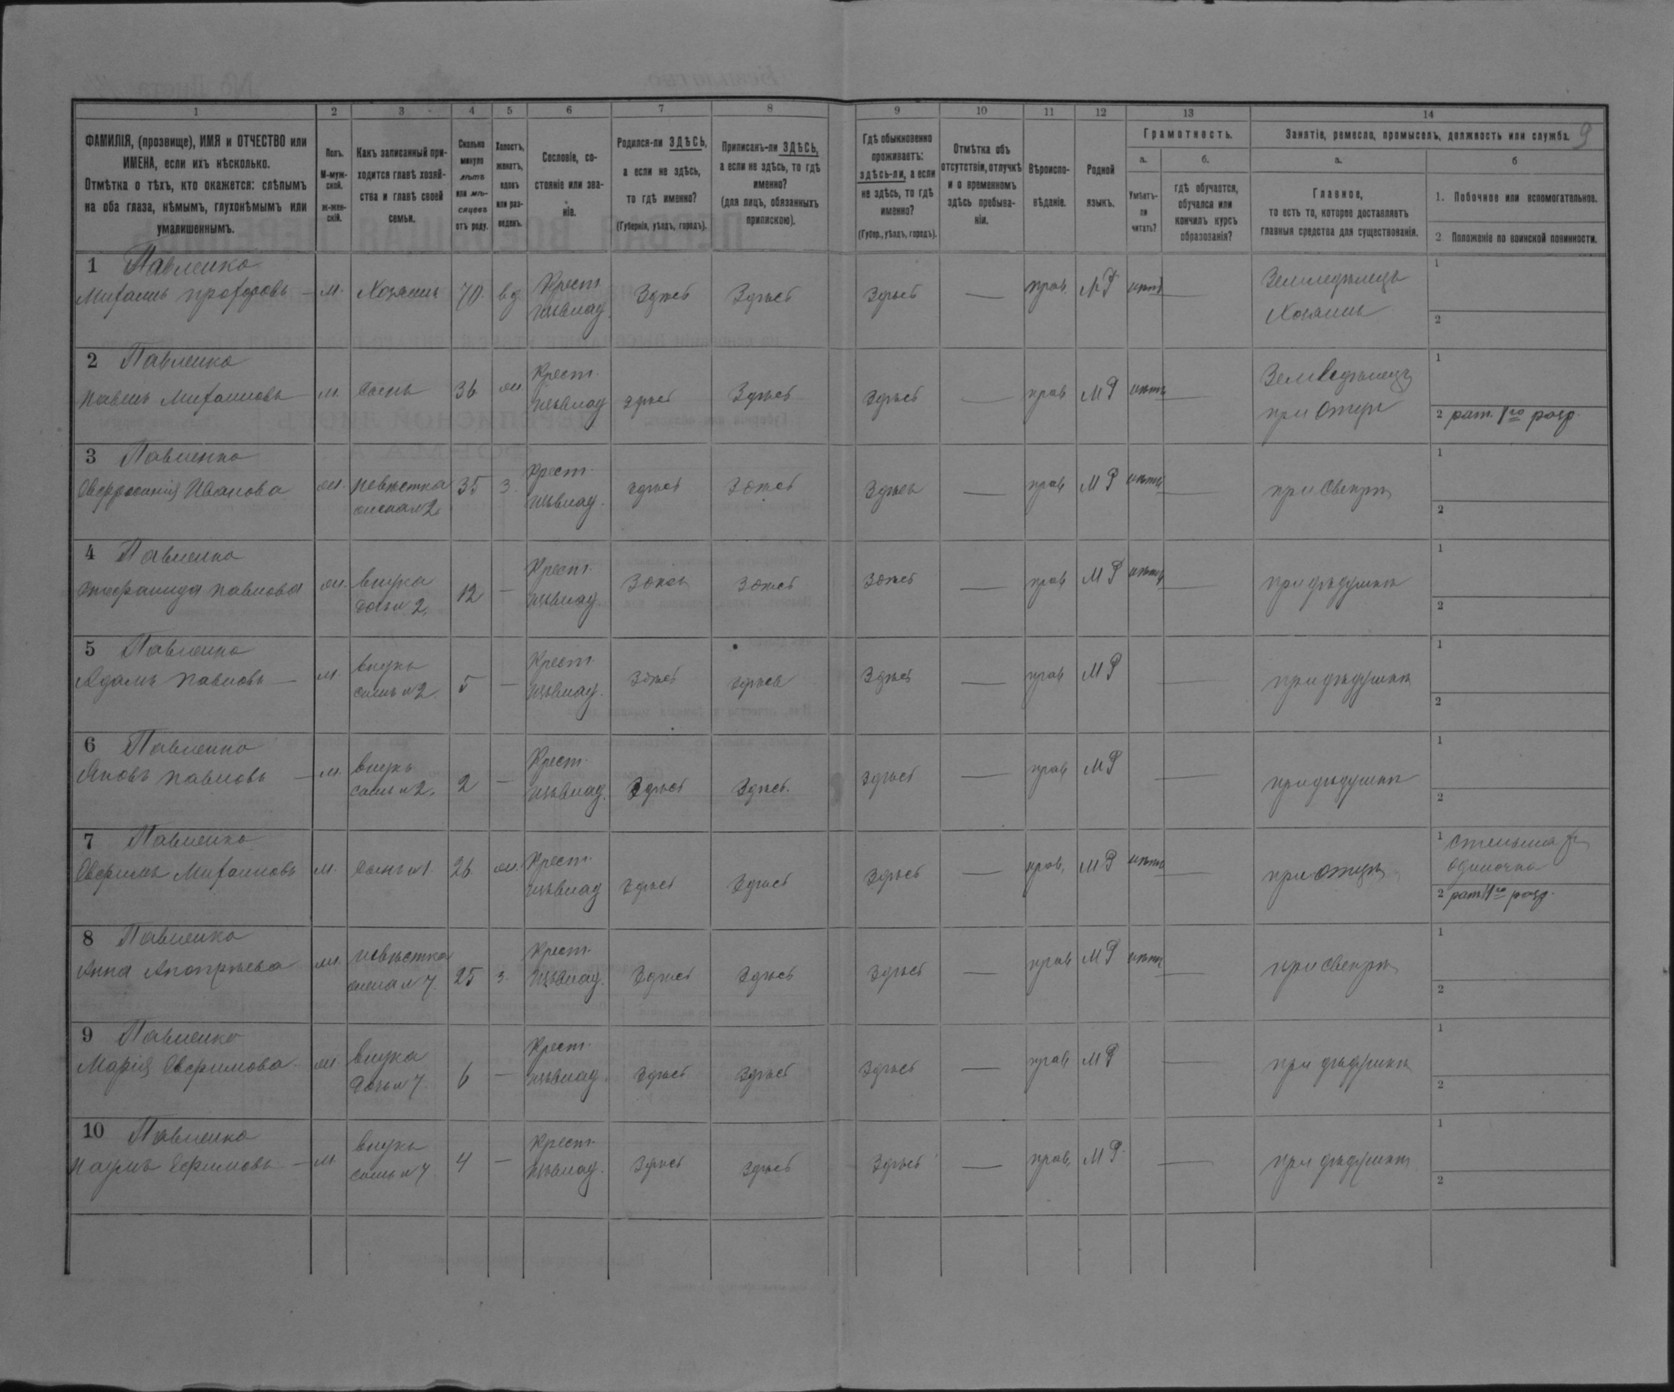 9
1 2 3 4 5 6 7 8 9 10 11 12 13 14
ФАМИЛІЯ, (прозвище), ИМЯ и ОТЧЕСТВО или
ИМЕНА, если ихъ нѣсколько.
Отмѣтка о тѣхъ, кто окажется: слѣпымъ
на оба глаза, нѣмымъ, глухонѣмымъ или
умалишеннымъ.
Полъ.
М-муж-
ской.
ж-жен-
скій.
Какъ записанный при-
ходится главѣ хозяй-
ства и главѣ своей
семьи.
Сколько
минуло
лѣтъ
или мѣ-
сяцевъ
отъ роду.
Холостъ,
женатъ,
вдовъ
или раз-
веденъ.
Сословіе, со-
стояніе или зва-
ніе.
Родился-ли ЗДѢСЬ,
а если не здѣсь,
то гдѣ именно?
(Губернія, уѣздъ, городъ).
Приписанъ-ли ЗДѢСЬ,
а если не здѣсь, то гдѣ
именно?
(для лицъ, обязанныхъ
припискою).
Гдѣ обыкновенно
проживаетъ:
здѣсь-ли, а если
не здѣсь, то гдѣ
именно?
(Губер., уѣздъ, городъ).
Отмѣтка объ
отсутствіи, отлучкѣ
и о временномъ
здѣсь пребыва-
ніи.
Вѣроиспо-
вѣданіе.
Родной
языкъ.
Грамотность.
а.
Умѣетъ-
ли
читать?
б.
гдѣ обучается,
обучался или
кончилъ курсъ
образованія?
Занятіе, ремесло, промыселъ, должность или служба.
а.
Главное,
то есть то, которое доставляетъ
главныя средства для существованія.
б
1. Побочное или вспомогательное.
2. Положеніе по воинской повинности.
1 Павленко
Михаилъ Прохоровъ — м. Хозяинъ 70. вд Крест. Здѣсь Здѣсь Здѣсь — прав М Р нѣтъ — Земледѣлецъ
Хозяинъ
1
2
2 Павленко
Павелъ Михаиловъ м. сынъ 36 ж. Крест. здѣсь Здѣсь Здѣсь — прав М Р нѣтъ — Земледѣлецъ
при отцѣ
1
2 рат. 1го розр.
3 Павленко
Ивановна ж. невѣстка 35 з. Крест. здѣсь Здѣсь Здѣсь — прав М Р нѣтъ — при свекрѣ
1
2
4 Павленко
Павлова ж. внука 12 — Крест. Здѣсь Здѣсь Здѣсь — прав М Р нѣтъ — при дѣдушкѣ
дочь № 2.
1
2
5 Павленко
Адамъ Павловъ — м. внукъ 5 — Крест. Здѣсь здѣсь Здѣсь — прав М Р — при дѣдушкѣ
сынъ № 2
1
2
6 Павленко
Яковъ Павловъ — м. внукъ 2 — Крест. Здѣсь Здѣсь. Здѣсь — прав М Р — при дѣдушкѣ
сынъ № 2.
1
2
7 Павленко
Михаиловъ м. сынъ № 1 26 ж. Крест. здѣсь Здѣсь Здѣсь — прав. М Р нѣтъ — при отцѣ
1
2 рат. 1го розр.
8 Павленко
Анна ж. невѣстка 25 з. Крест. Здѣсь Здѣсь Здѣсь — прав М Р нѣтъ — при свекрѣ
1
2
9 Павленко
Марія ж. внука 6 — Крест. здѣсь здѣсь Здѣсь — прав М Р — при дѣдушкѣ
дочь № 7.
1
2
10 Павленко
Наумъ — м внукъ 4 — Крест. Здѣсь здѣсь Здѣсь — прав. М Р. — при дѣдушкѣ
сынъ № 7.
1
2